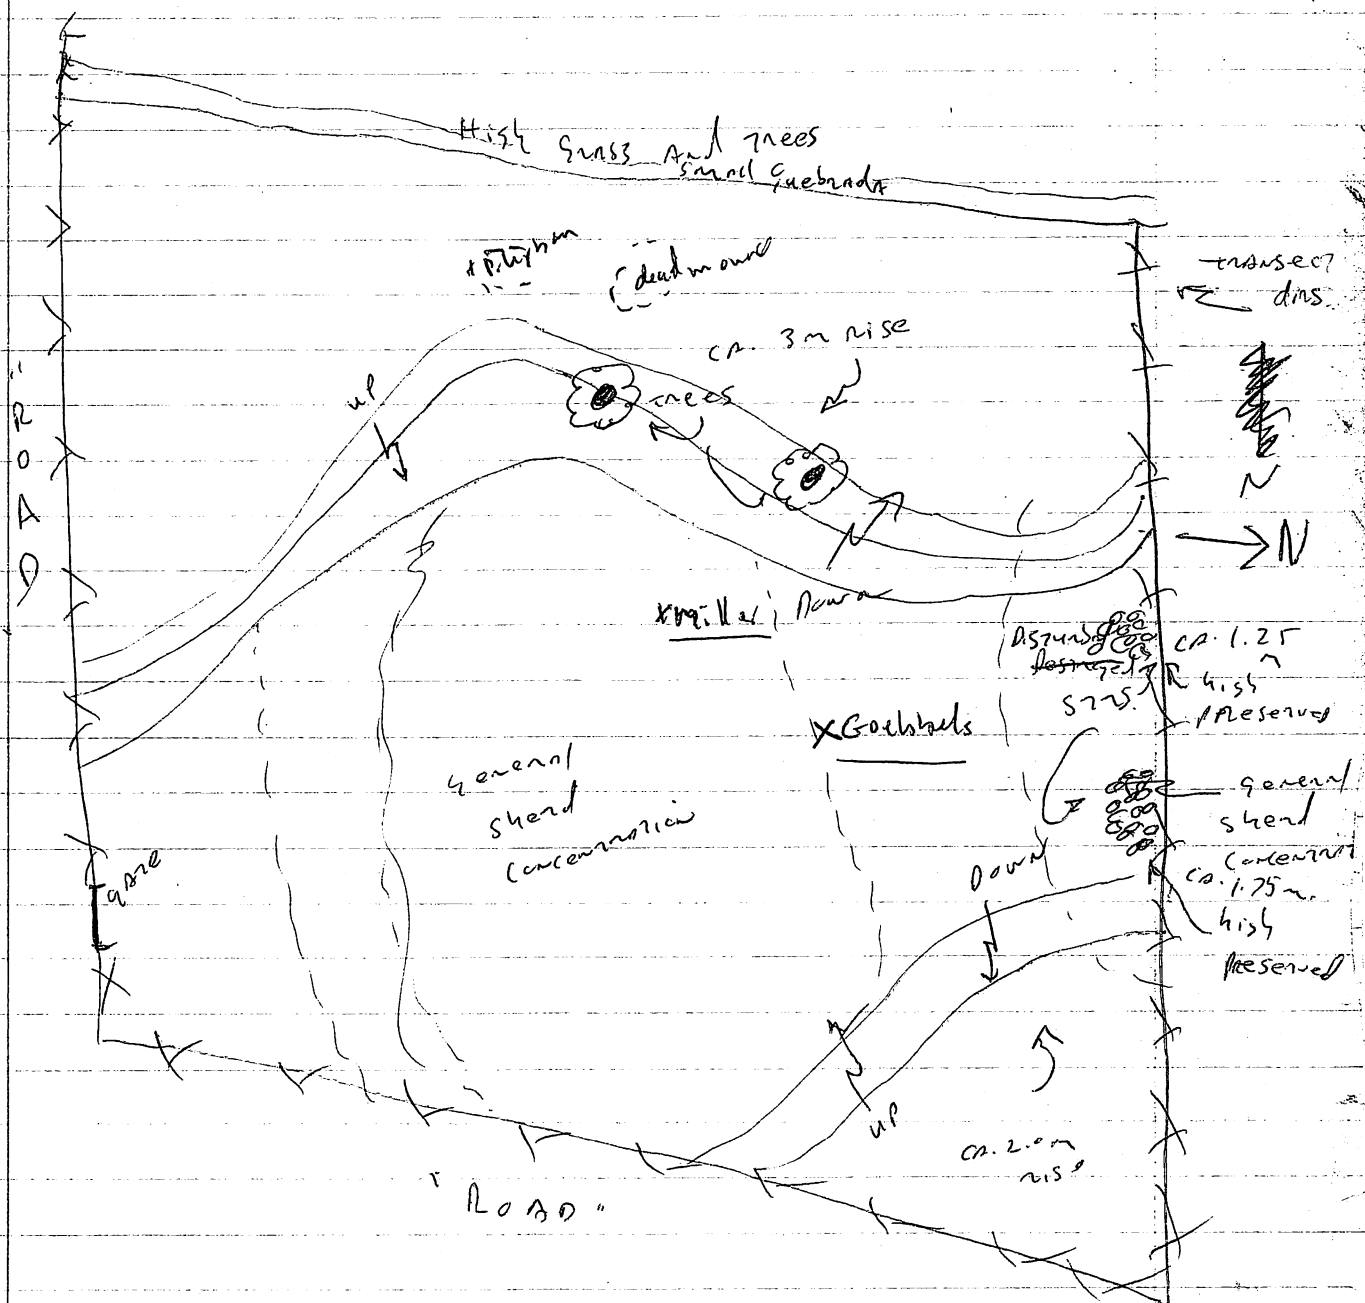 High grass and trees
small quebrada
dead mound
transect
dirs.
ca. 3 m rise
up
trees
"ROAD
N
N
Down
Disturbed
Destroyed
strs.
ca. 1.25
m
high
preserved
XGoebbels
general
sherd
concentration
general
sherd
concentrat
ca. 1.75 m.
high
preserved
DOWN
gate
up
ca. 2.0 m
rise
"ROAD"